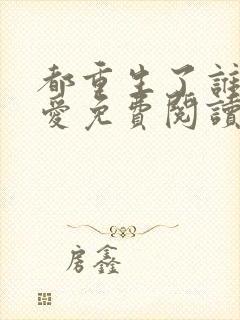 都重生了誰
愛免費閱讀
房鑫